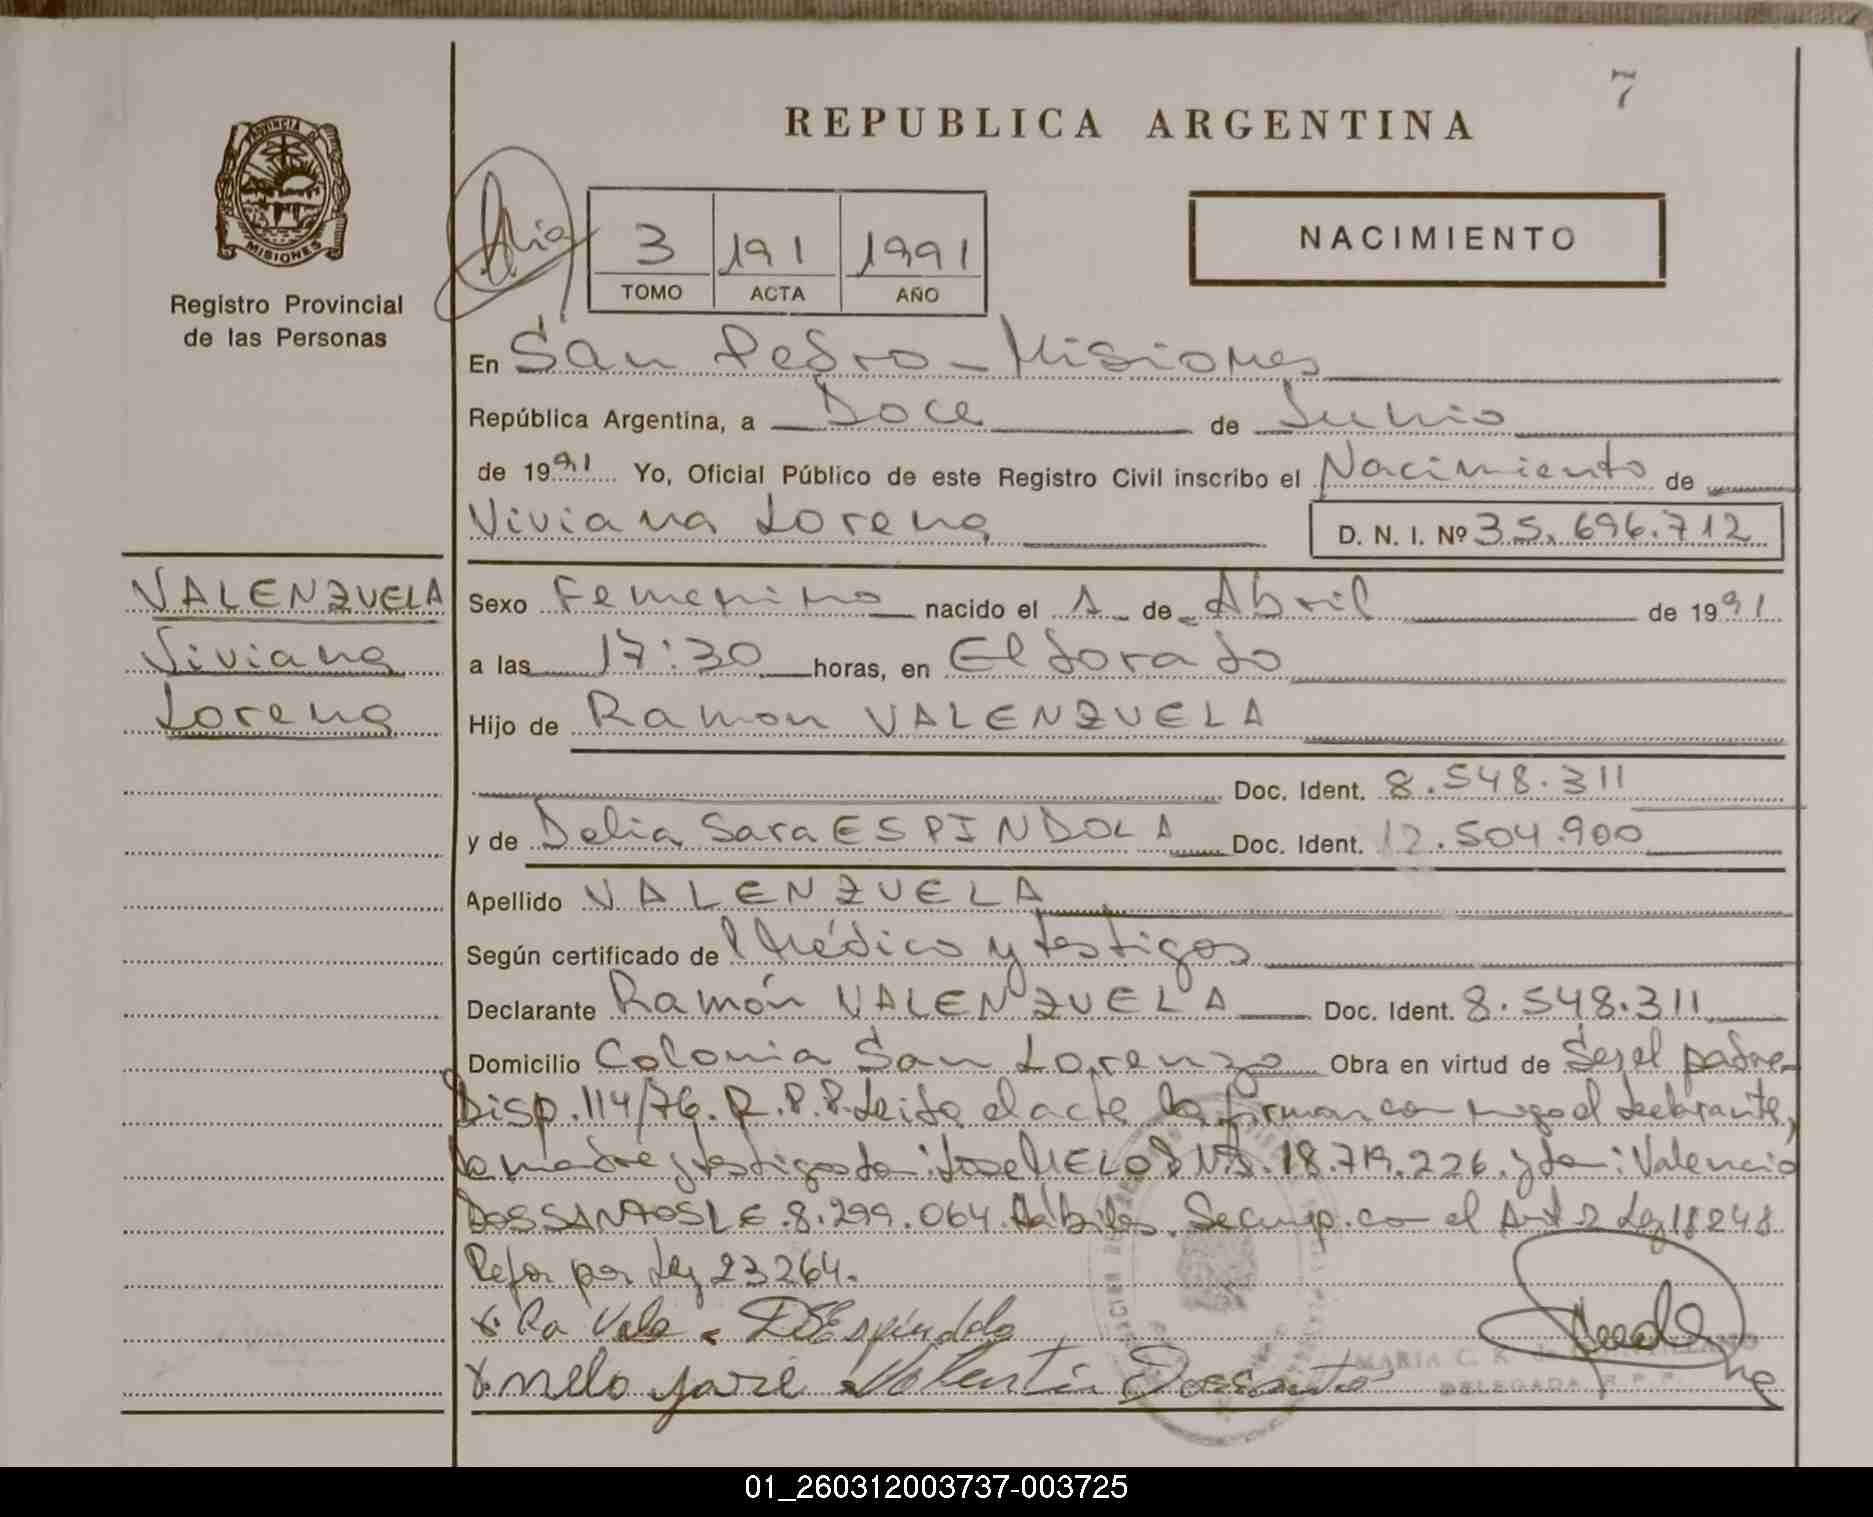 7
REPUBLICA ARGENTINA
PROVINCIA DE
MISIONES
Registro Provincial
de las Personas
3 191 1991
TOMO ACTA AÑO
NACIMIENTO
En San Pedro - Misiones
República Argentina, a Doce de Junio
de 1991 Yo, Oficial Público de este Registro Civil inscribo el Nacimiento de
Viviana Lorena
D. N. I. Nº 35.696.712
VALENZUELA
Viviana
Lorena
Sexo Femenino nacido el 1 de Abril de 1991
a las 17:30 horas, en Eldorado
Hijo de Ramon VALENZUELA
Doc. Ident. 8.548.311
y de Delia Sara ESPINDOLA Doc. Ident. 12.504.900
Apellido VALENZUELA
Según certificado de Médico y testigos
Declarante Ramón VALENZUELA Doc. Ident. 8.548.311
Domicilio Colonia San Lorenzo Obra en virtud de Ser el padre-
Disp. 114/76. R.P.P. Leida el acta la firman conmigo el declarante,
la madre y testigos Jose MELO D.N.I. 18.719.226. y Valencio
DOS SANTOS L E 8.299.064 Hábiles. Se cump. con el Art 2 Ley 18248
Refor por Ley 23264.
x. Ra Vale - DSEspindola
x. melo jose Valentin Dossantos
MARIA C. R. de
DELEGADA R.P.P.
01_260312003737-003725